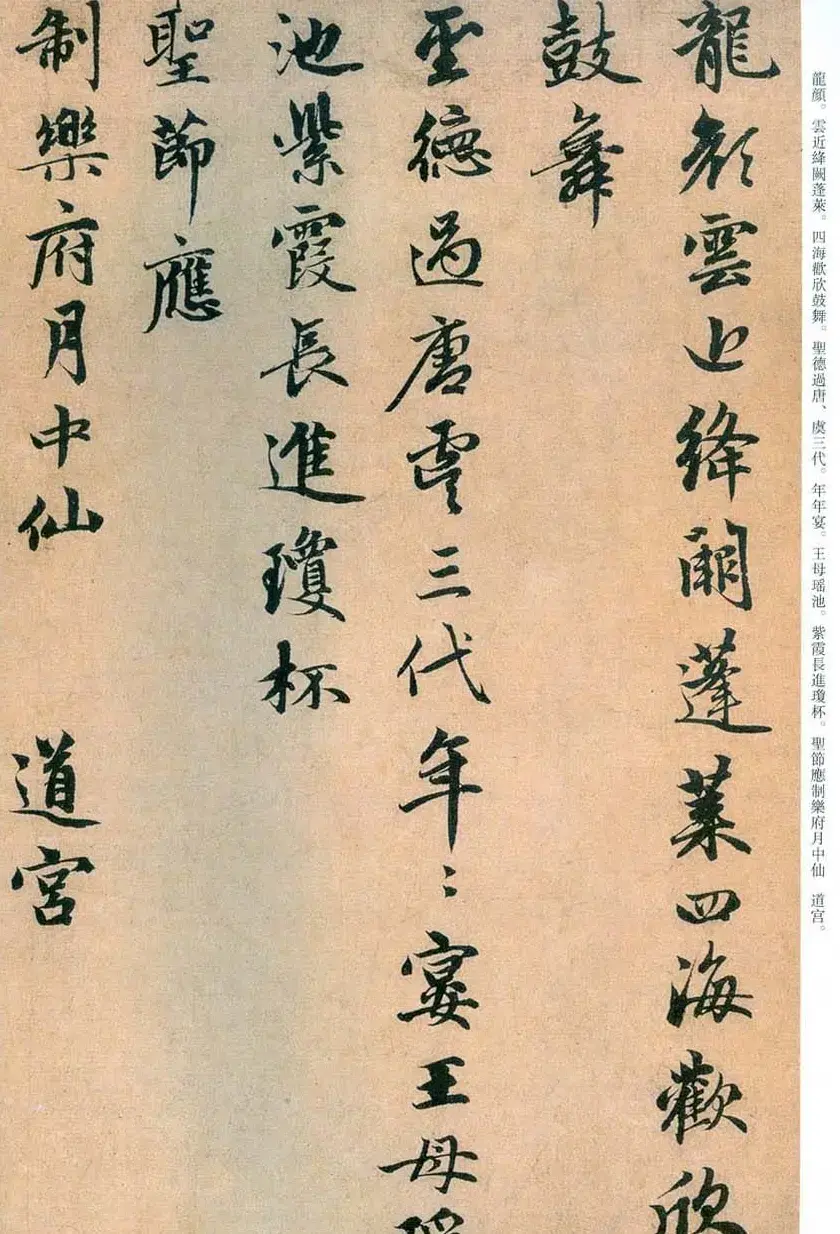 龍顔。雲近絳闕蓬萊。四海歡欣鼓舞。聖德過唐、虞三代。年年宴。王母瑶池。紫霞長進瓊杯。聖節應制樂府月中仙　道宫。
龍顔雲近絳闕蓬萊四海歡欣
鼓舞
聖德過唐虞三代年〻宴王母瑶
池紫霞長進瓊杯
聖節應
制樂府月中仙　道宫